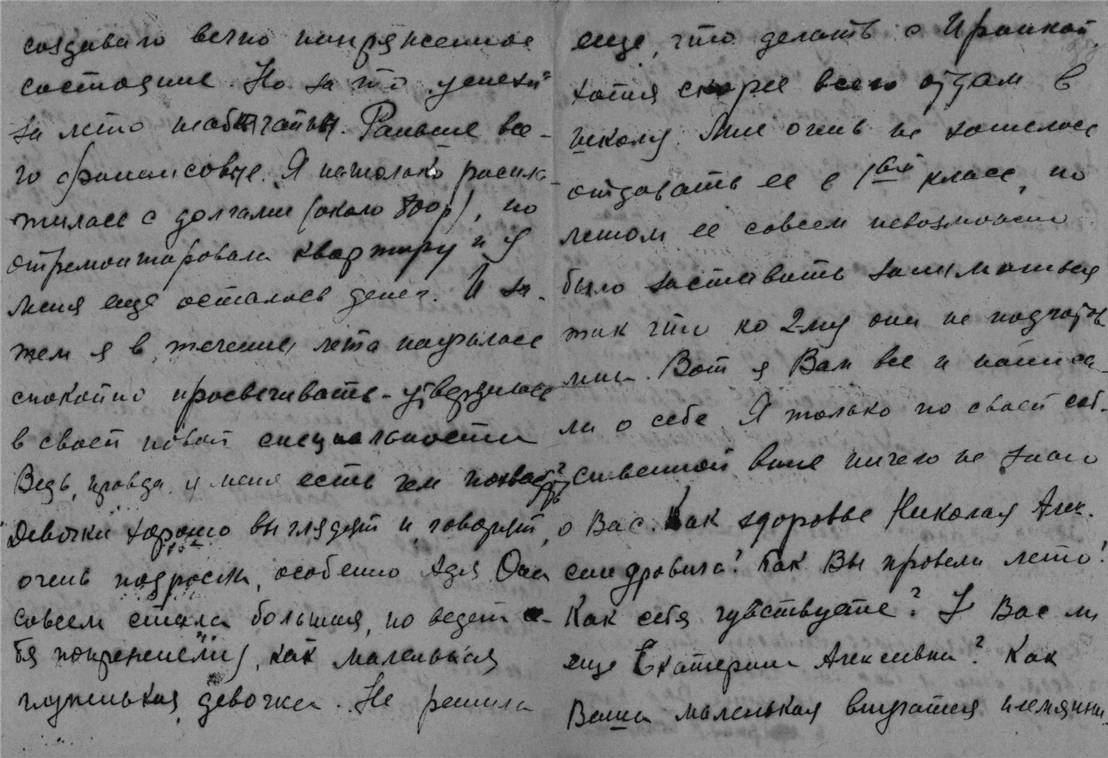 создавало вечно напряженное
состояние. Но за то успехи
за лето необычайны. Раньше все-
го финансовые. Я не только распла-
тилась с долгами (около 800 р), но
отремонтировала квартиру и у
меня еще осталось денег. И за-
тем я в течение лета научилась
спокойно просвечивать – утвердилась
в своей новой специальности
Ведь, правда, у меня есть чем похва
Девочки хорошо выглядят и, говорят,
очень подросли, особенно Адя. Она
совсем стала большая, но ведет се-
бя попрежнему, как маленькая
глупенькая девочка. Не решила
еще, что делать с Иринкой,
хотя скорее всего отдам в
школу. Мне очень не хотелось
отдавать ее в 1ый класс, но
летом ее совсем невозможно
было заставить заниматься
так что ко 2-му они не подготов
лена. Вот я Вам все и написа-
ла о себе. Я только по своей соб-
ственной вине ничего не знаю
о Вас. Как здоровье Николая Алек-
сандровича? Как Вы провели лето?
Как себя чувствуете? У Вас ли
еще Екатерина Алексевна? Как
Ваша маленькая внучатая племянни-